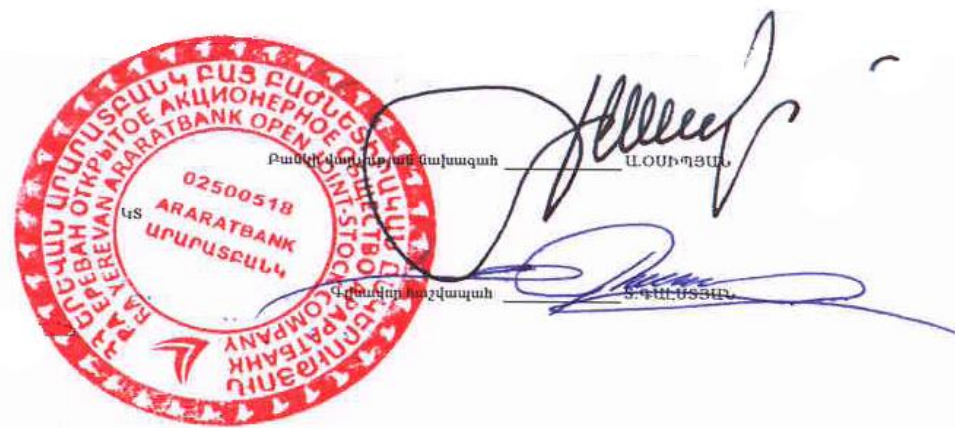 ՀՀ ԵՐԵՎԱՆ ԱՐԱՐԱՏԲԱՆԿ ԲԱՑ ԲԱԺՆԵՏԻՐԱԿԱՆ ԸՆԿԵՐՈՒԹՅՈՒՆ
Р.А ЕРЕВАН ОТКРЫТОЕ АКЦИОНЕРНОЕ ОБЩЕСТВО АРАРАТБАНК
R.A YEREVAN ARARATBANK OPEN JOINT-STOCK COMPANY
02500518
ARARATBANK
ԱՐԱՐԱՏԲԱՆԿ
ԿՏ
Բանկի վարչության նախագահ Ա.ՕՍԻՊՅԱՆ
Գլխավոր հաշվապահ Տ.ԳԱԼՍՏՅԱՆ